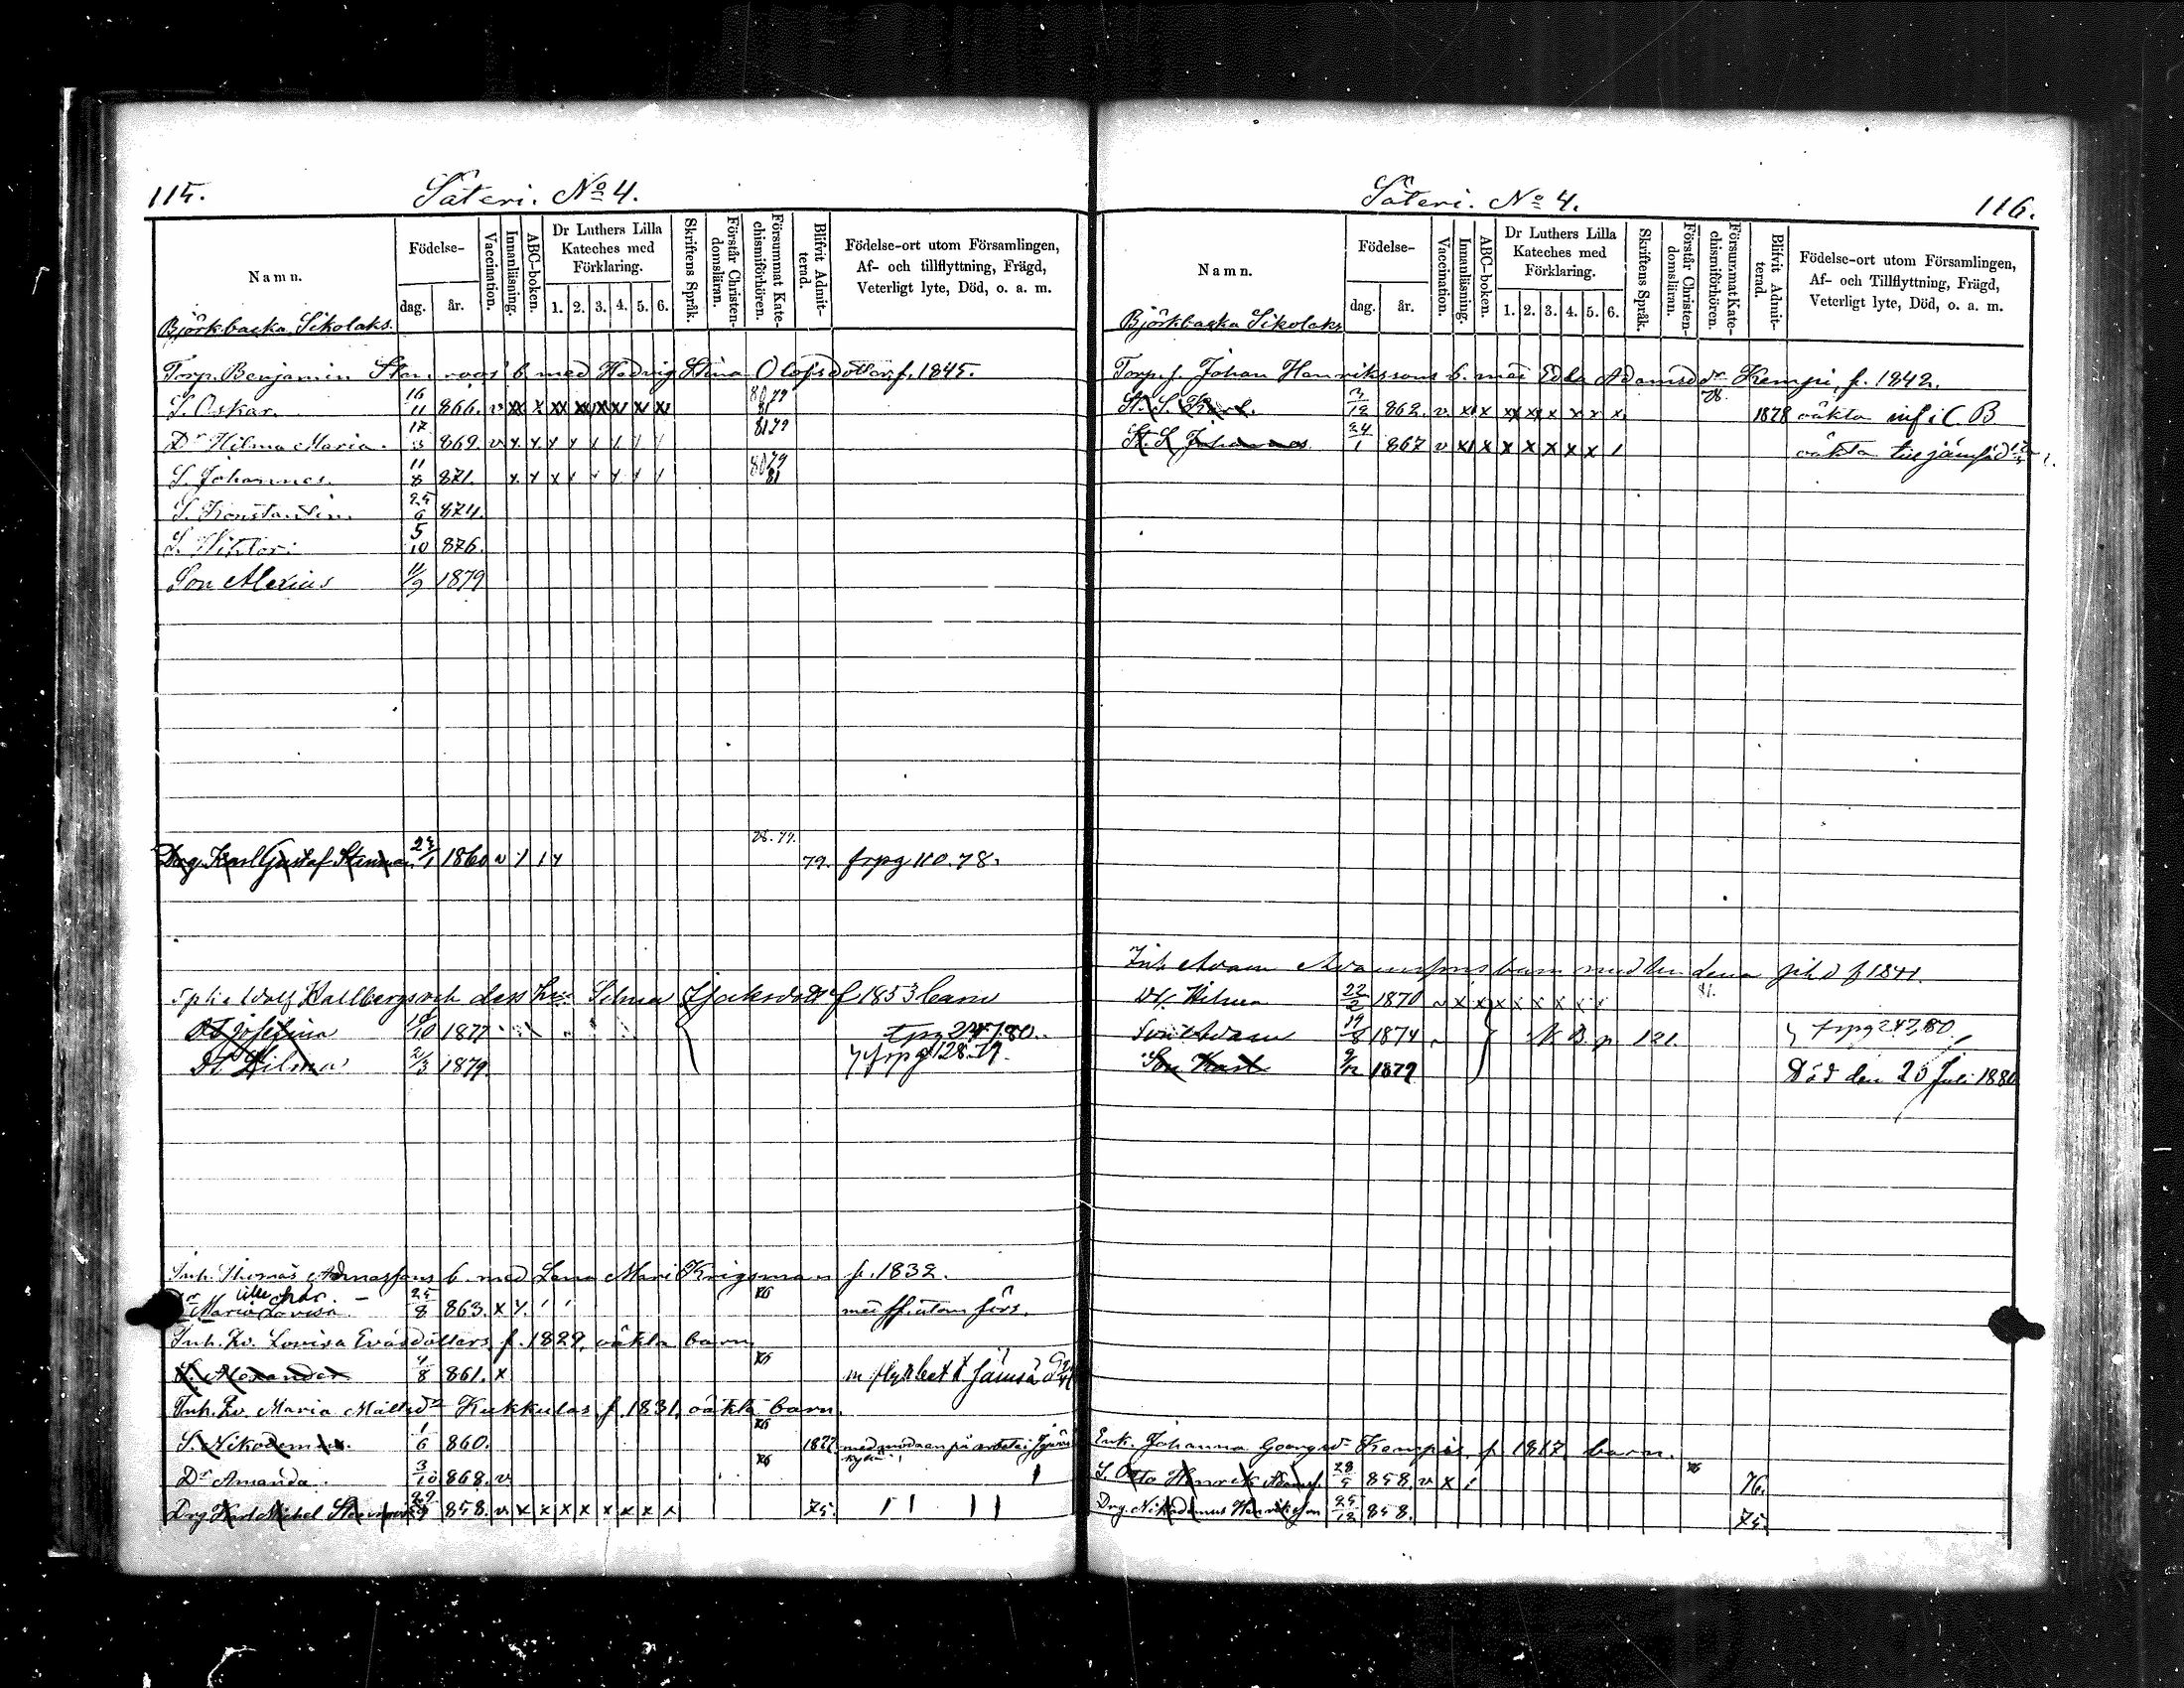 115.
Säteri. No 4.
Namn.
Födelse-
dag.
år.
Vaccination.
Innanläsning.
ABC-boken.
Dr Luthers Lilla Kateches med Förklaring.
1. 2. 3. 4. 5. 6.
Skriftens Språk.
Förstår Christendomsläran.
Försummat Katechismiförhören.
Blifvit Admitterad.
Födelse-ort utom Församlingen, Af- och tillflyttning, Frägd, Veterligt lyte, Död, o. a. m.
Björkbacka Sikolaks.
Torp. Benjamin Stenroos' b. med Hedvig Stina Olofsdotter f. 1845.
S. Oskar. 16/11 866. v xx x xx xx xx xx xx xx 80 79 81
Dr Hilma Maria. 17/3 869. v 81 79
S. Johannes. 11/8 871. 80 79 81
S. Konstantin. 25/6 874.
S. Viktor: 5/10 876.
Son Alexius 11/9 1879
Drg. Karl Gustaf Stenman 23/1 1860 v 78. 79. 79. frpg 110. 78.
Hallbergs och dess Selma f 1853 barn
Dt Josefina 10 1877 tpg 247.80.
Dt Hilma 2/3 1879. frpg 128.79.
Inh. Thomas b. med Lena Mari Krigsman f. 1832.
Maria Lovisa 25/8 863. x 76 med ff. utom förs.
Inh. Lovisa Evasdotters f. 1829, oäkta barn
S. Alexander 4/8 861. x 76 Jämsä
Inh. Maria Mattsdr Kukkulas f. 1831, oäkta barn.
S. Nikodemus. 1/6 860. 76 1877
Dr Amanda. 3/10 868. v 76
Drg Karl Michel 29 858. v x x x x x x x x 75.
Säteri. No 4.
116.
Namn.
Födelse-
dag.
år.
Vaccination.
Innanläsning.
ABC-boken.
Dr Luthers Lilla Kateches med Förklaring.
1. 2. 3. 4. 5. 6.
Skriftens Språk.
Förstår Christendomsläran.
Försummat Katechismiförhören.
Blifvit Admitterad.
Födelse-ort utom Församlingen, Af- och Tillflyttning, Frägd, Veterligt lyte, Död, o. a. m.
Björkbacka Sikolaks
Torp. f. Johan Henrikssons b. med Edla Adamsdr Kempi, f. 1842.
St. S. Karl. 3/12 862. v 78. 1878 oäkta inf i C. B
St. S. Johannes 24/1 867 v x x x x x x x oäkta till
Inh Adam Adamssons barn med Lena f 1841.
Dt. Hilma 22/2 1870 v x x x x x x x 81.
Son Adam 19/8 1874 N. B. p 121. frpg 247,80
Son Karl 9/12 1879 Död den 25 Juli 1880
Enk. Johanna Georgsdr Kempis, f. 1817 barn.
S. Otto Henrik 28/5 858. v x 76.
Drg. Nikodemus Henriksson 25/12 858. 75.